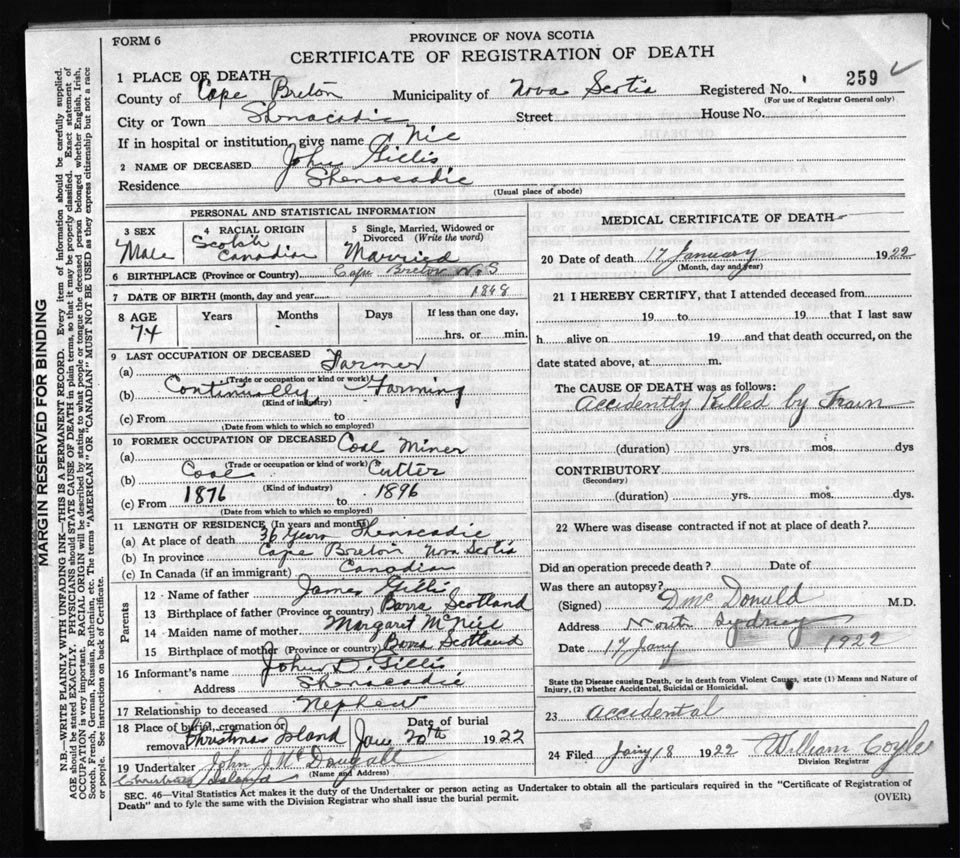 FORM 6
PROVINCE OF NOVA SCOTIA
CERTIFICATE OF REGISTRATION OF DEATH
1 PLACE OF DEATH
County of Cape Breton Municipality of Nova Scotia Registered No. 259
(For use of Registrar General only)
City or Town Shenacadie Street House No.
If in hospital or institution, give name
2 NAME OF DECEASED John Gillis
Residence Shenacadie
(Usual place of abode)
PERSONAL AND STATISTICAL INFORMATION
3 SEX Male
4 RACIAL ORIGIN Scotch Canadian
5 Single, Married, Widowed or Divorced (Write the word) Married
6 BIRTHPLACE (Province or Country) Cape Breton N.S
7 DATE OF BIRTH (month, day and year) 1848
8 AGE Years Months Days If less than one day,
74 hrs. or min.
9 LAST OCCUPATION OF DECEASED
(a) Farmer
(Trade or occupation or kind of work)
(b) Continually Farming
(Kind of industry)
(c) From to
(Date from which to which so employed)
10 FORMER OCCUPATION OF DECEASED
(a) Coal Miner
(Trade or occupation or kind of work)
(b) Coal Cutter
(Kind of industry)
(c) From 1876 to 1896
(Date from which to which so employed)
11 LENGTH OF RESIDENCE (In years and months)
(a) At place of death 36 Years Shenacadie
(b) In province Cape Breton Nova Scotia
(c) In Canada (if an immigrant) Canadian
Parents
12 Name of father James Gillis
13 Birthplace of father (Province or country) Barra Scotland
14 Maiden name of mother Margaret McNeil
15 Birthplace of mother (Province or country) Barra Scotland
16 Informant's name John D. Gillis
Address Shenacadie
17 Relationship to deceased Nephew
18 Place of burial, cremation or removal Christmas Island Date of burial Jan 20th 1922
19 Undertaker John J. McDougall
(Name and Address)
Christmas Island
MEDICAL CERTIFICATE OF DEATH
20 Date of death 17 January 1922
(Month, day and year)
21 I HEREBY CERTIFY, that I attended deceased from
19 to 19 that I last saw
h alive on 19 and that death occurred, on the
date stated above, at m.
The CAUSE OF DEATH was as follows:
Accidently Killed by Train
(duration) yrs. mos. dys
CONTRIBUTORY
(Secondary)
(duration) yrs. mos. dys.
22 Where was disease contracted if not at place of death?
Did an operation precede death? Date of
Was there an autopsy?
(Signed) D McDonald M.D.
Address North Sydney
Date 17 Jany 1922
State the Disease causing Death, or in death from Violent Causes, state (1) Means and Nature of
Injury, (2) whether Accidental, Suicidal or Homicidal.
23 accidental
24 Filed Jany 18 1922 William Coyle
Division Registrar
SEC. 46—Vital Statistics Act makes it the duty of the Undertaker or person acting as Undertaker to obtain all the particulars required in the "Certificate of Registration of
Death" and to fyle the same with the Division Registrar who shall issue the burial permit.
(OVER)
MARGIN RESERVED FOR BINDING
N.B.—WRITE PLAINLY WITH UNFADING INK—THIS IS A PERMANENT RECORD. Every item of information should be carefully supplied.
AGE should be stated EXACTLY. PHYSICIANS should STATE CAUSE OF DEATH in plain terms, so that it may be properly classified. Exact statement of
OCCUPATION is very important. RACIAL ORIGIN will be described by stating to what people or tongue the deceased person belonged whether English, Irish,
Scotch, French, German, Russian, Ruthenian, etc. The terms "AMERICAN" OR "CANADIAN" MUST NOT BE USED as they express citizenship but not a race
or people. See instructions on back of Certificate.